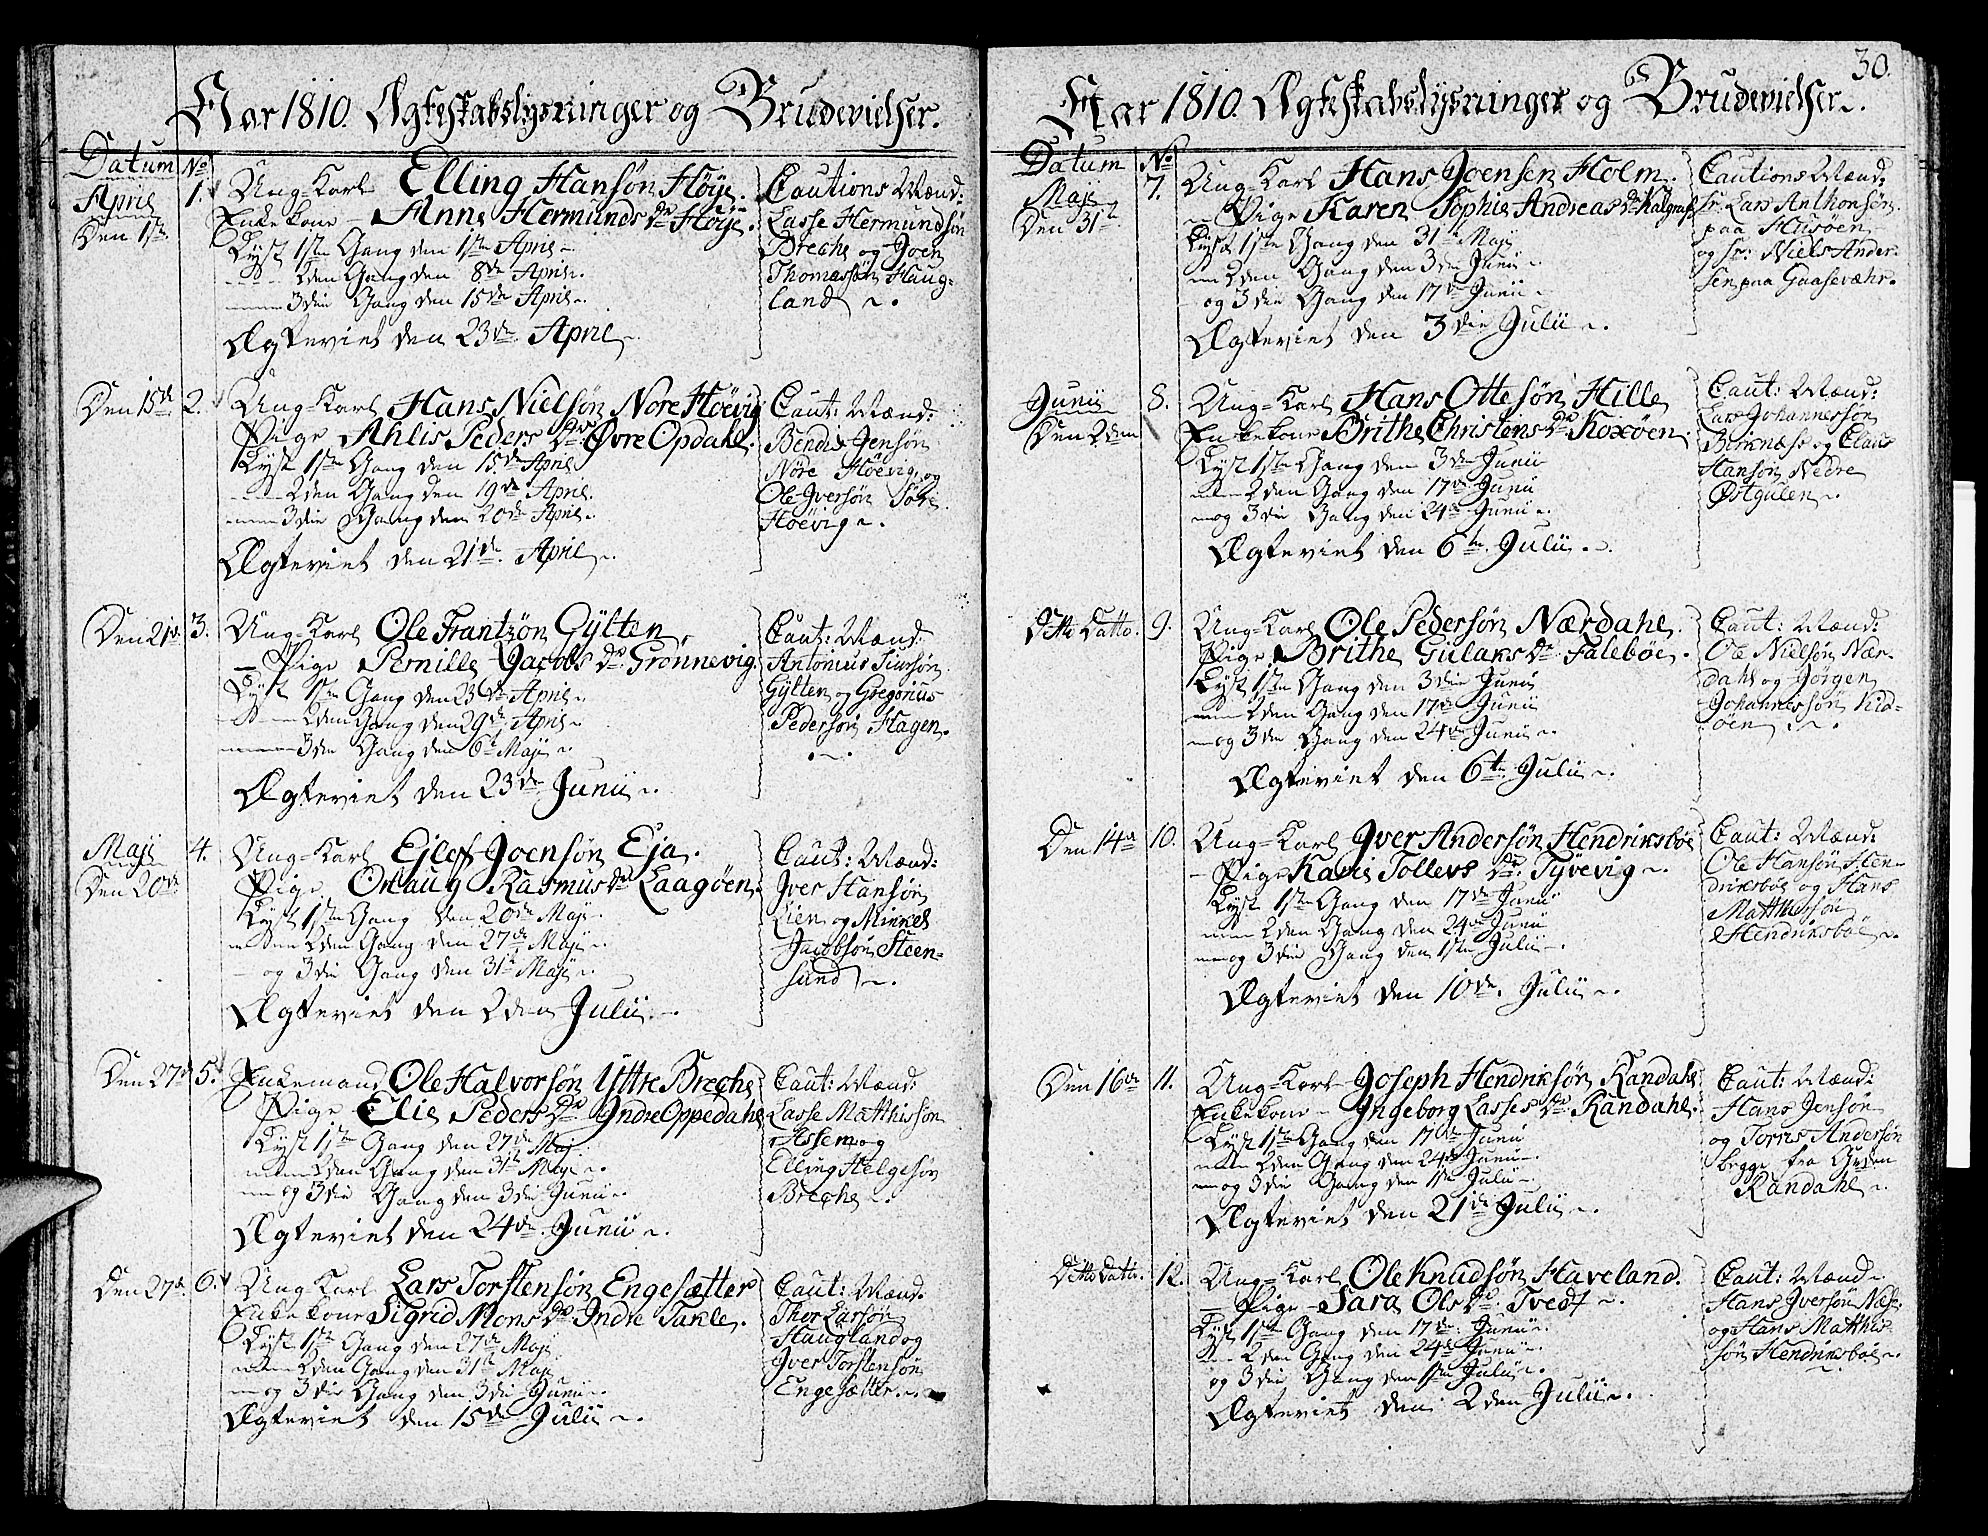 Aar 1810. Ægteskabslysninger og Brudevielser.
Datum No
April
Den 1ste
1. Ung-Karl Elling Hansøn Høÿe.
Enkekone - Anne Hermunds Dr Høÿe.
Lyst 1ste Gang den 1ste April
2den Gang den 8de April
3die Gang den 15de April
Ægteviet den 23de April
Cautions Mænd:
Lasse Hermundsøn
Breche og Joen
Thomassøn Haug-
land
Den 15de 2. Ung-Karl Hans Nielsøn Nore Høevig
Pige Ahlis Peders Dr Øvre Opdahl.
Lyst 1ste Gang den 15de April
2den Gang den 19de April.
3die Gang den 20de April
Ægteviet den 21de April
Caut: Mænd:
Bendix Jensøn
Nore Høevig og
Ole Iversøn
Høevig
Den 21de 3. Ung-Karl Ole Frantzøn Gÿlten
Pige Pernille Jacobs Dr Grønnevig
Lyst 1ste Gang den 23de April
2den Gang den 29de April
3die Gang den 6te Maji
Ægteviet den 23de Junii
Caut: Mænd:
Antonius Siursøn
Gÿlten og Gregorius
Pedersøn Hagen.
Maji
Den 20de
4. Ung-Karl Ejlef Joensøn Eja.
Pige Orlaug Rasmus Dr Laagøen.
Lyst 1ste Gang den 20de Maji
2den Gang den 27de Maji
og 3die Gang den 31te Maji
Ægteviet den 2den Julii.
Caut: Mænd:
Iver Hansøn
Lien og Mikkel
Jacobsøn Steen-
sund
Den 27de 5. Enkemand Ole Halvorsøn Ÿttre Breche
Pige Elie Peders Dr Indre Oppedahl
Lyst 1ste Gang den 27de Maji
2den Gang den 31te Maji
og 3die Gang den 3die Junii
Ægteviet den 24de Junii
Caut: Mænd:
Lasse Matthissøn
Assem og
Elling Helgesøn
Breche
Den 27de 6. Ung Karl Lars Torstensøn Engesætter
Enkekone Sigrid Mons Dr Indre Takle.
Lyst 1ste Gang den 27de Maji
2den Gang den 31te Maji
og 3die Gang den 3die Junii
Ægteviet den 15de Julii
Caut: Mænd:
Thor Larsøn
Haugland og
Iver Torstensøn
Engesætter.
30.
Aar 1810. Ægteskabslysninger og Brudevielser.
Datum No
Maji
Den 31te
7. Ung-Karl Hans Joensen Holm.
Pige Karen Sophie Andreas Dr Kalgraf
Lyst 1ste Gang den 31te Maji
2den Gang den 3die Junii
og 3die Gang den 17de Junii
Ægteviet den 3die Julii
Cautions Mænd:
Sr. Lars Anthonsøn
paa Husøen
og Sr. Niels Ander-
sen paa Gaasevæhr.
Junii
Den 2den
8. Ung-Karl Hans Ottesøn Hille
Enkekone Brithe Christens Dr Koxøen.
Lyst 1ste Gang den 3die Junii
2den Gang den 17de Junii
og 3die Gang den 24de Junii
Ægteviet den 6te Julii.
Caut: Mænd:
Lars Johannessøn
Birknæss og Claus
Hansøn Nedre
Østgulen
Ditto Datto. 9. Ung-Karl Ole Pedersøn Nærdahl.
Pige Brithe Gulaks Dr Faleboe.
Lyst 1ste Gang den 3die Junii
2den Gang den 17de Junii
og 3die Gang den 24de Junii
Ægteviet den 6te Julii
Caut: Mænd:
Ole Nielsøn Nær-
dahl og Jørgen
Johannessøn Kid-
øen
Den 14de 10. Ung-Karl Iver Andersøn Hendriksbøe
Pige Karie Tollevs Dr. Tÿvevig
Lyst 1ste Gang den 17de Junii
2den Gang den 24de Junii
og 3die Gang den 1ste Julii
Ægteviet den 10de Julii
Caut: Mænd:
Ole Hansøn Hen-
driksbøe og Hans
Matthissøn
Hendriksbøe
Den 16de 11. Ung-Karl Joseph Hendriksøn Randahl
Enkekone Ingeborg Lasses Dr Randahl.
Lyst 1ste Gang den 17de Junii
2den Gang den 24de Junii
og 3die Gang den 1ste Julii
Ægteviet den 21de Julii
Caut: Mænd:
Hans Jensøn
og Torris Andersøn
begge fra Gården
Randahl
Ditto Datto. 12. Ung-Karl Ole Knudsøn Haveland.
Pige Sara Ols Dr. Tvedt
Lyst 1ste Gang den 17de Junii
2den Gang den 24de Junii
og 3die Gang den 1ste Julii
Ægteviet den 2den Julii
Caut: Mænd
Hans Iversøn Næse
og Hans Matthis-
søn Hendriksbøe